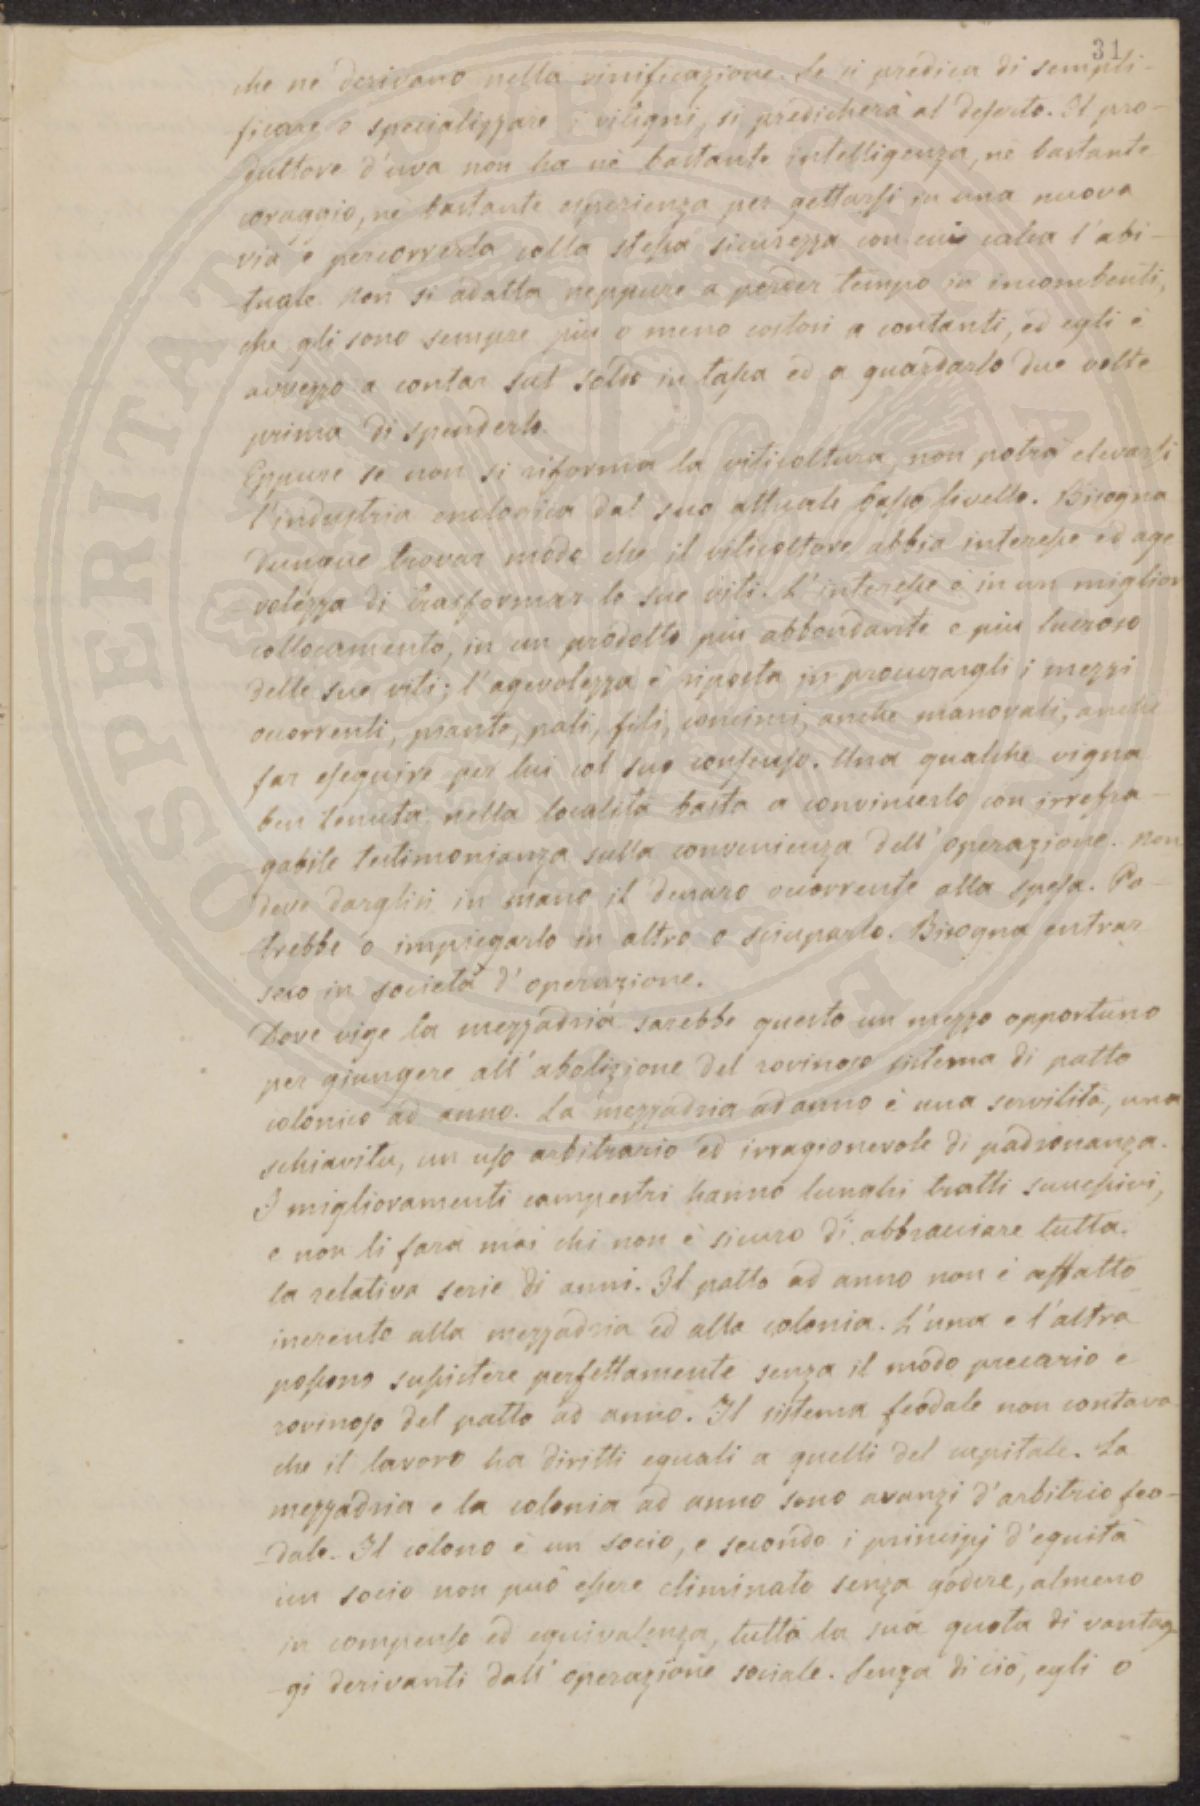 31
che ne derivano nella vinificazione. Se si predica di sempli-
ficare e specializzare i vitigni, si predicherà al deserto. Il pro-
duttore d'uva non ha nè bastante intelligenza, nè bastante
coraggio, nè bastante esperienza per gettarsi in una nuova
via e percorrerla colla stessa sicurezza con cui calca l'abi-
tuale. Non si adatta neppure a perder tempo in incombenti,
che gli sono sempre più o meno costosi a contanti, ed egli è
avvezzo a contar sul soldo in tasca ed a guardarlo due volte
prima di spenderlo.
Eppure se non si riforma la viticoltura, non potrà elevarsi
l'industria enologica dal suo attuale basso livello. Bisogna
dunque trovar modo che il viticoltore abbia interesse ed age
volezza di trasformar le sue viti. L'interesse è in un miglior
collocamento, in un prodotto più abbondante e più lucroso
delle sue viti; l'agevolezza è riposta in procurargli i mezzi
occorrenti, piante, pali, fili, concimi, anche manovali, anche
far eseguire per lui col suo consenso. Una qualche vigna
ben tenuta nella località basta a convincerlo con irrefra-
gabile testimonianza sulla convenienza dell'operazione. Non
deve darglisi in mano il denaro occorrente alla spesa. Po-
trebbe o impiegarlo in altro o sciuparlo. Bisogna entrar
seco in società d'operazione.
Dove vige la mezzadria sarebbe questo un mezzo opportuno
per giungere all'abolizione del rovinoso sistema di patto
colonico ad anno. La mezzadria ad anno è una servilità, una
schiavitù, un uso arbitrario ed irragionevole di padronanza.
I miglioramenti campestri hanno lunghi tratti successivi,
e non li farà mai chi non è sicuro di abbracciare tutta
la relativa serie di anni. Il patto ad anno non è affatto
inerente alla mezzadria ed alla colonia. L'una e l'altra
possono sussistere perfettamente senza il modo precario e
rovinoso del patto ad anno. Il sistema feodale non contava
che il lavoro ha diritti eguali a quelli del capitale. La
mezzadria e la colonia ad anno sono avanzi d'arbitrio feo-
dale. Il colono è un socio, e secondo i principj d'equità
un socio non può essere eliminato senza godere, almeno
in compenso ed equivalenza, tutta la sua quota di vantag
gi derivanti dall'operazione sociale. Senza di ciò, egli o